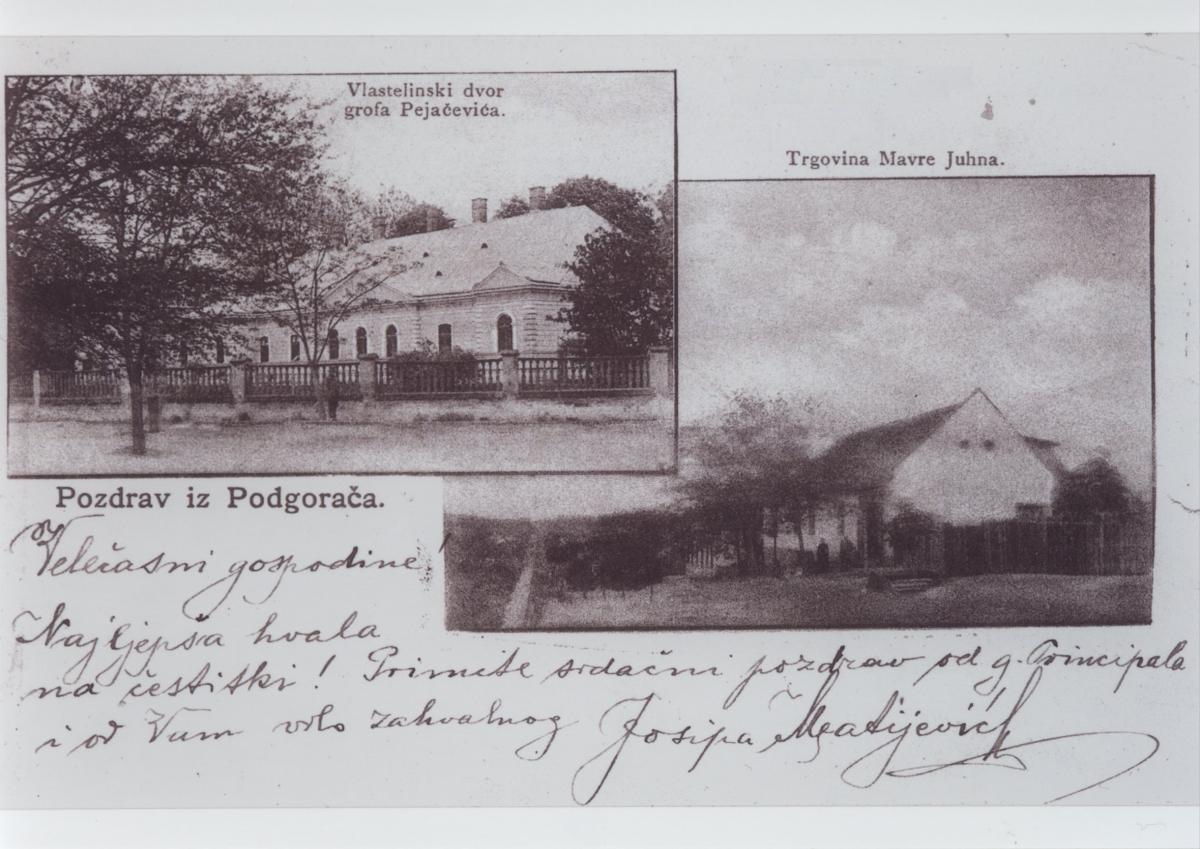 Vlastelinski dvor
grofa Pejačevića.
Trgovina Mavre Juhna.
Pozdrav iz Podgorača.
Velečasni gospodine!
Najljepša hvala
na čestitki! Primite srdačni pozdrav od g. Principala
i od Vam vrlo zahvalnog Josipa Matijević